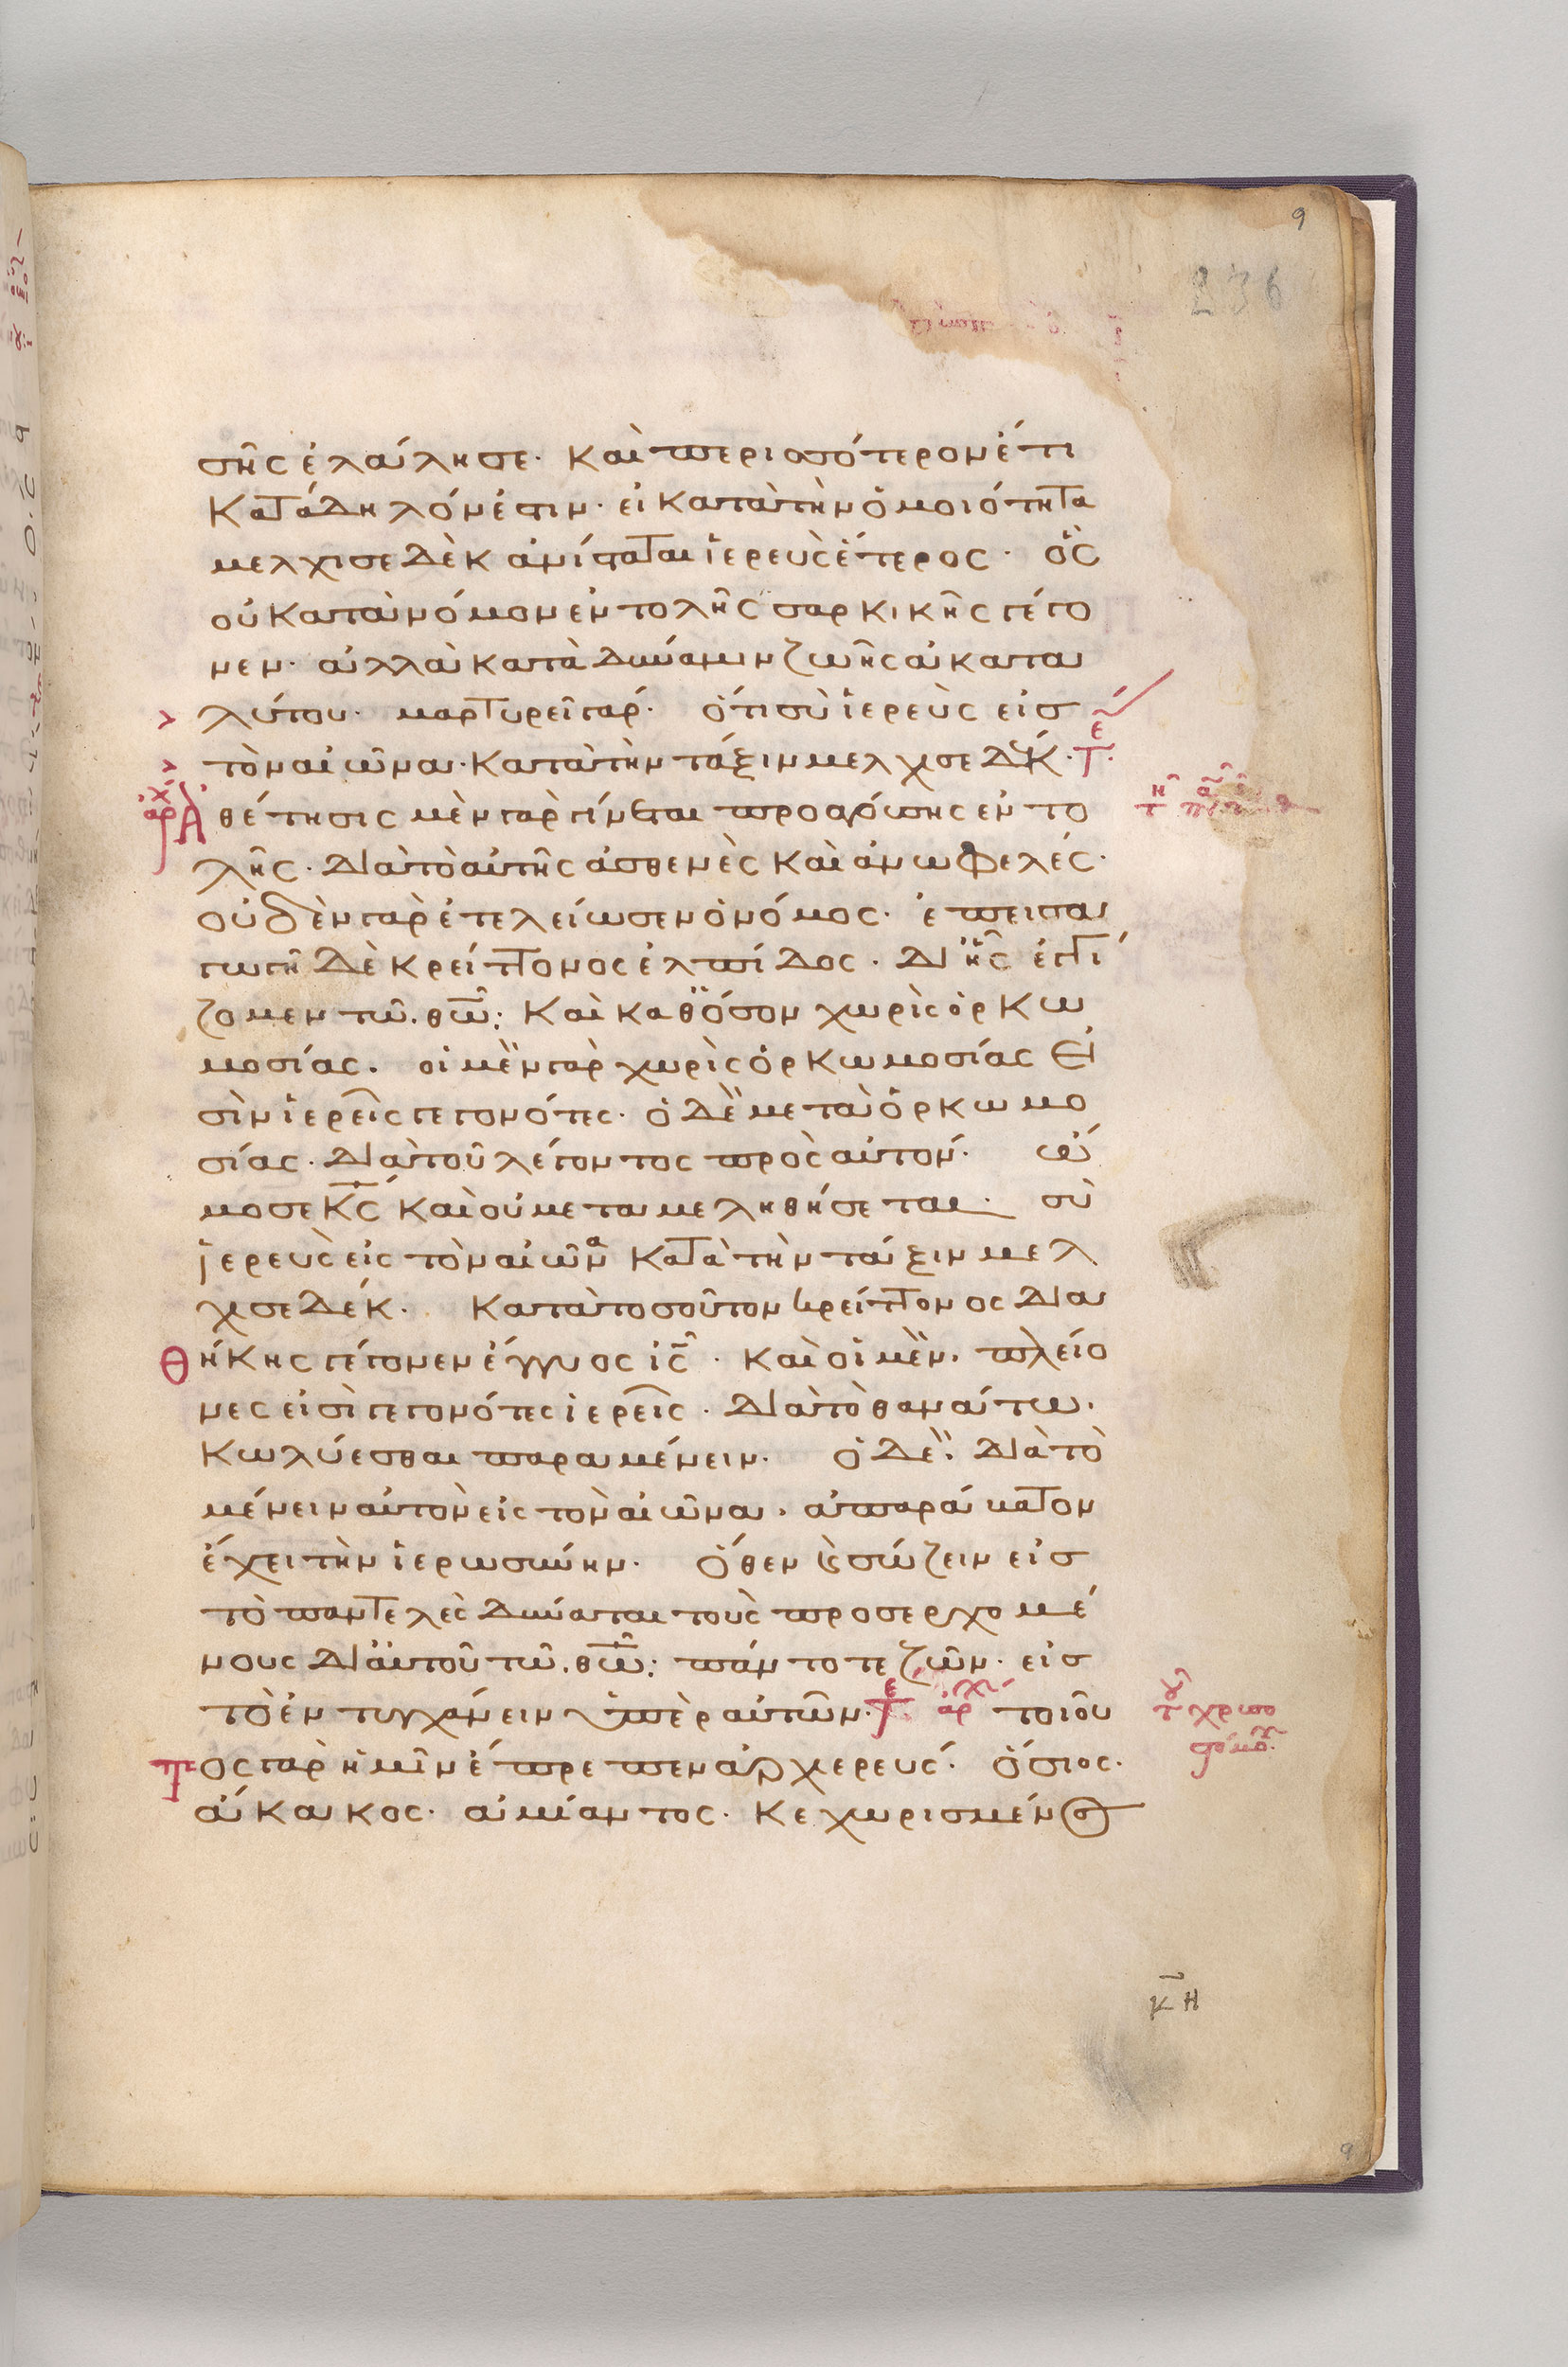 9
236
σῆς ἐλάλησε· καὶ περισσότερον ἔτι
κατάδηλόν ἐστιν· εἰ κατὰ τὴν ὁμοιότητα
μελχισεδὲκ ἀνίσταται ἱερεὺς ἕτερος· ὃς
οὐ κατὰ νόμον ἐντολῆς σαρκικῆς γέγο
νεν· ἀλλὰ κατὰ δύναμιν ζωῆς ἀκατα
λύτου· μαρτυρεῖ γάρ· ὅτι σὺ ἱερεὺς εἰσ
τὸν αἰῶνα· κατὰ τὴν τάξιν μελχισεδέκ· τε
ἀρχ Ἀθέτησις μὲν γὰρ γίνεται προαγούσης ἐντο
λῆς· διὰ τὸ αὐτῆς ἀσθενὲς καὶ ἀνωφελές·
οὐδὲν γὰρ ἐτελείωσεν ὁ νόμος· ἐπεισα
γωγὴ δὲ κρείττονος ἐλπίδος· δι ἧς ἐγγί
ζομεν τῶ θῶ: καὶ καθ ὅσον χωρὶς ὁρκω
μοσίας· οἱ μὲν γὰρ χωρὶς ὁρκωμοσίας εἰ
σὶν ἱερεῖς γεγονότες· ὁ δὲ μετὰ ὁρκωμο
σίας· διὰ τοῦ λέγοντος πρὸς αὐτόν· ὤ
μοσε κς καὶ οὐ μεταμεληθήσεται· σὺ
ἱερεὺς εἰς τὸν αἰῶνα κατὰ τὴν τάξιν μελ
χισεδέκ· κατὰ τοσοῦτον κρείττονος δια
θήκης γέγονεν ἔγγυος ις· καὶ οἱ μὲν πλείο
νες εἰσὶ γεγονότες ἱερεῖς· διὰ τὸ θανάτω
κωλύεσθαι παραμένειν· ὁ δὲ διὰ τὸ
μένειν αὐτὸν εἰς τὸν αἰῶνα· ἀπαράβατον
ἔχει τὴν ἱερωσύνην· ὅθεν καὶ σώζειν εἰσ
τὸ παντελὲς δύναται τοὺς προσερχομέ
νους δι αὐτοῦ τῶ θῶ: πάντοτε ζῶν· εἰσ
τὸ ἐντυγχάνειν ὑπὲρ αὐτῶν· τε ἀρχ τοιοῦ
τος γὰρ ἡμῖν ἔπρεπεν ἀρχιερεύς· ὅσιος·
ἄκακος· ἀμίαντος· κεχωρισμένος
κη
9